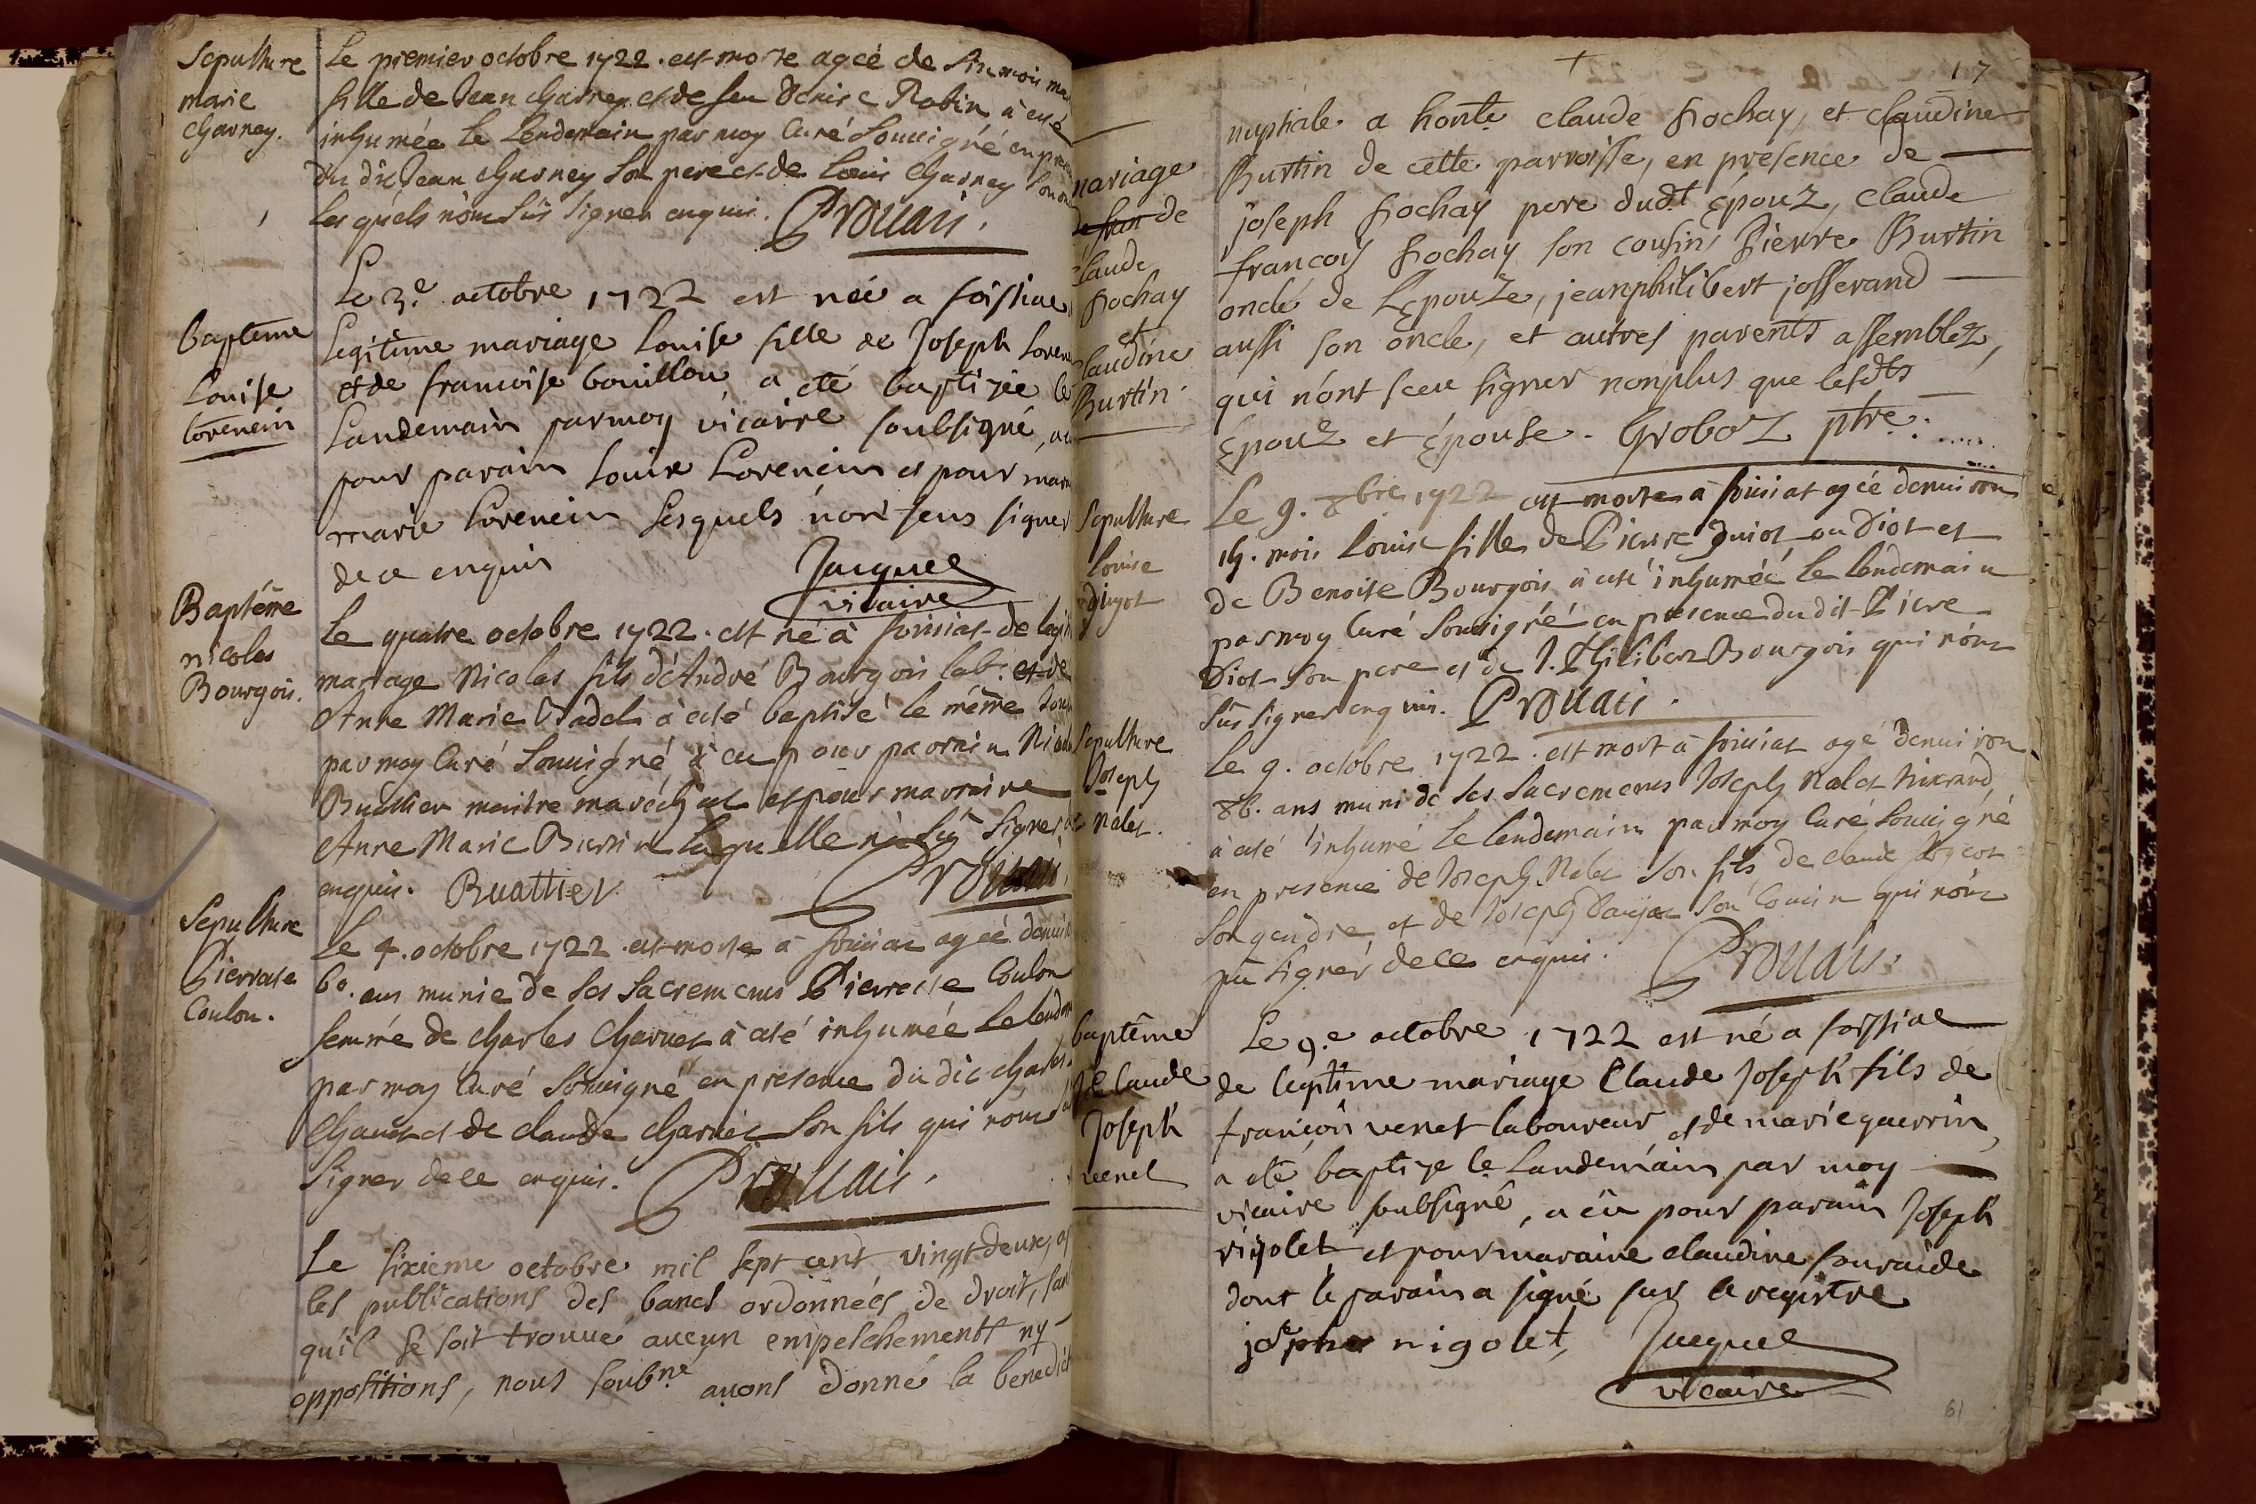 Sepulture
marie
Charney.
Le premier octobre 1722. est morte agée de six mois
fille de Jean Charney et de feu Denise Robin à esté
inhumée le lendemain par moy Curé soussigné en
du dit Jean Charney son pere et de Louis Charney
lesquels n'ont sus signer enquis. Prouais.
Baptême
Louise
Lorenein
Le 3.e octobre 1722 est née a foissiac
legitime mariage Louise fille de Joseph
et de francoise bouillou a eté baptizée le
Landemain par moy vicaire soubsigné,
pour parain Louis Lorenein et pour
marie Lorenein lesquels n'ont sceus signer
de ce enquis Jacquel
vicaire
Baptême
nicolas
Bourgois.
Le quatre octobre 1722. est né à foissiat de
mariage Nicolas fils d'André Bourgois lab.r et de
Anne Marie Badel à esté baptisé le même
par moy Curé soussigné à eu pour parrain
Buattier maitre maréchal et pour marraine
Anne Marie Burtin laquelle n'a sçu signer
enquis. Buattier Prouais.
Sepulture
Pierrete
Coulon.
Le 4. octobre 1722. est morte à foissiat agée
60. ans munie de ses sacremens Pierrette Coulon
femme de Charles Charnet à esté inhumée le
par moy Curé soussigné en presence du dit
Charnet et de Claude Charnet son fils qui n'ont
signer de ce enquis. Prouais.
Le sixieme octobre mil sept cent vingt deux,
les publications des bancs ordonnées de droit,
qu'il se soit trouvé aucun empeschements ny
oppositions, nous soub.né avons donné la
17
mariage
de
claude
Rochay
et
claudine
Burtin.
nuptiale a honte claude Rochay, et claudine
Burtin de cette parroisse, en presence de
joseph Rochay pere dud.t Épouz, claude
françois Rochay son cousin, Pierre Burtin
oncle de L'epouze, jeanphilibert josserand
aussi son oncle, et autres parents assemblez,
qui n'ont sceu signer nonplus que lesdts
Epouz et Épouse. Groboz ptre.
Sepulture
Louise
Le 9. 8bre 1722 est morte à foissiat agée denviron
mois Louise fille de Pierre Guiot ou Diot et
de Benoite Bourgois à esté inhumée le lendemain
par moy Curé soussigné en presence du dit Piere
Diot son pere et de J. Philibert Bourgois qui n'ont
sus signer enquis. Prouais.
Sepulture
Joseph
Nalet.
Le 9. octobre 1722. est mort à foissiat agé denviron
ans muni de ses sacremens Joseph Nalet
à esté inhumé le lendemain par moy Curé soussigné
en presence de Joseph Nalet son fils, de claude
son gendre et de Joseph son cousin qui n'ont
pu signer de ce enquis. Prouais.
baptême
de Claude
Joseph
venet
Le 9.e octobre 1722 est né a foissiac
de legitime mariage Claude Joseph fils de
françois venet laboureur et de marie guerrin,
a eté baptize le Landemain par moy
vicaire soubsigné, a eû pour parain Joseph
rigolet et pour maraine claudine
dont le parain a signé sur le registre
joseph rigolet, Jacquel
vicaire
61